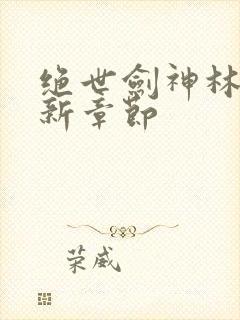 绝世劍神林
新章節
荣威